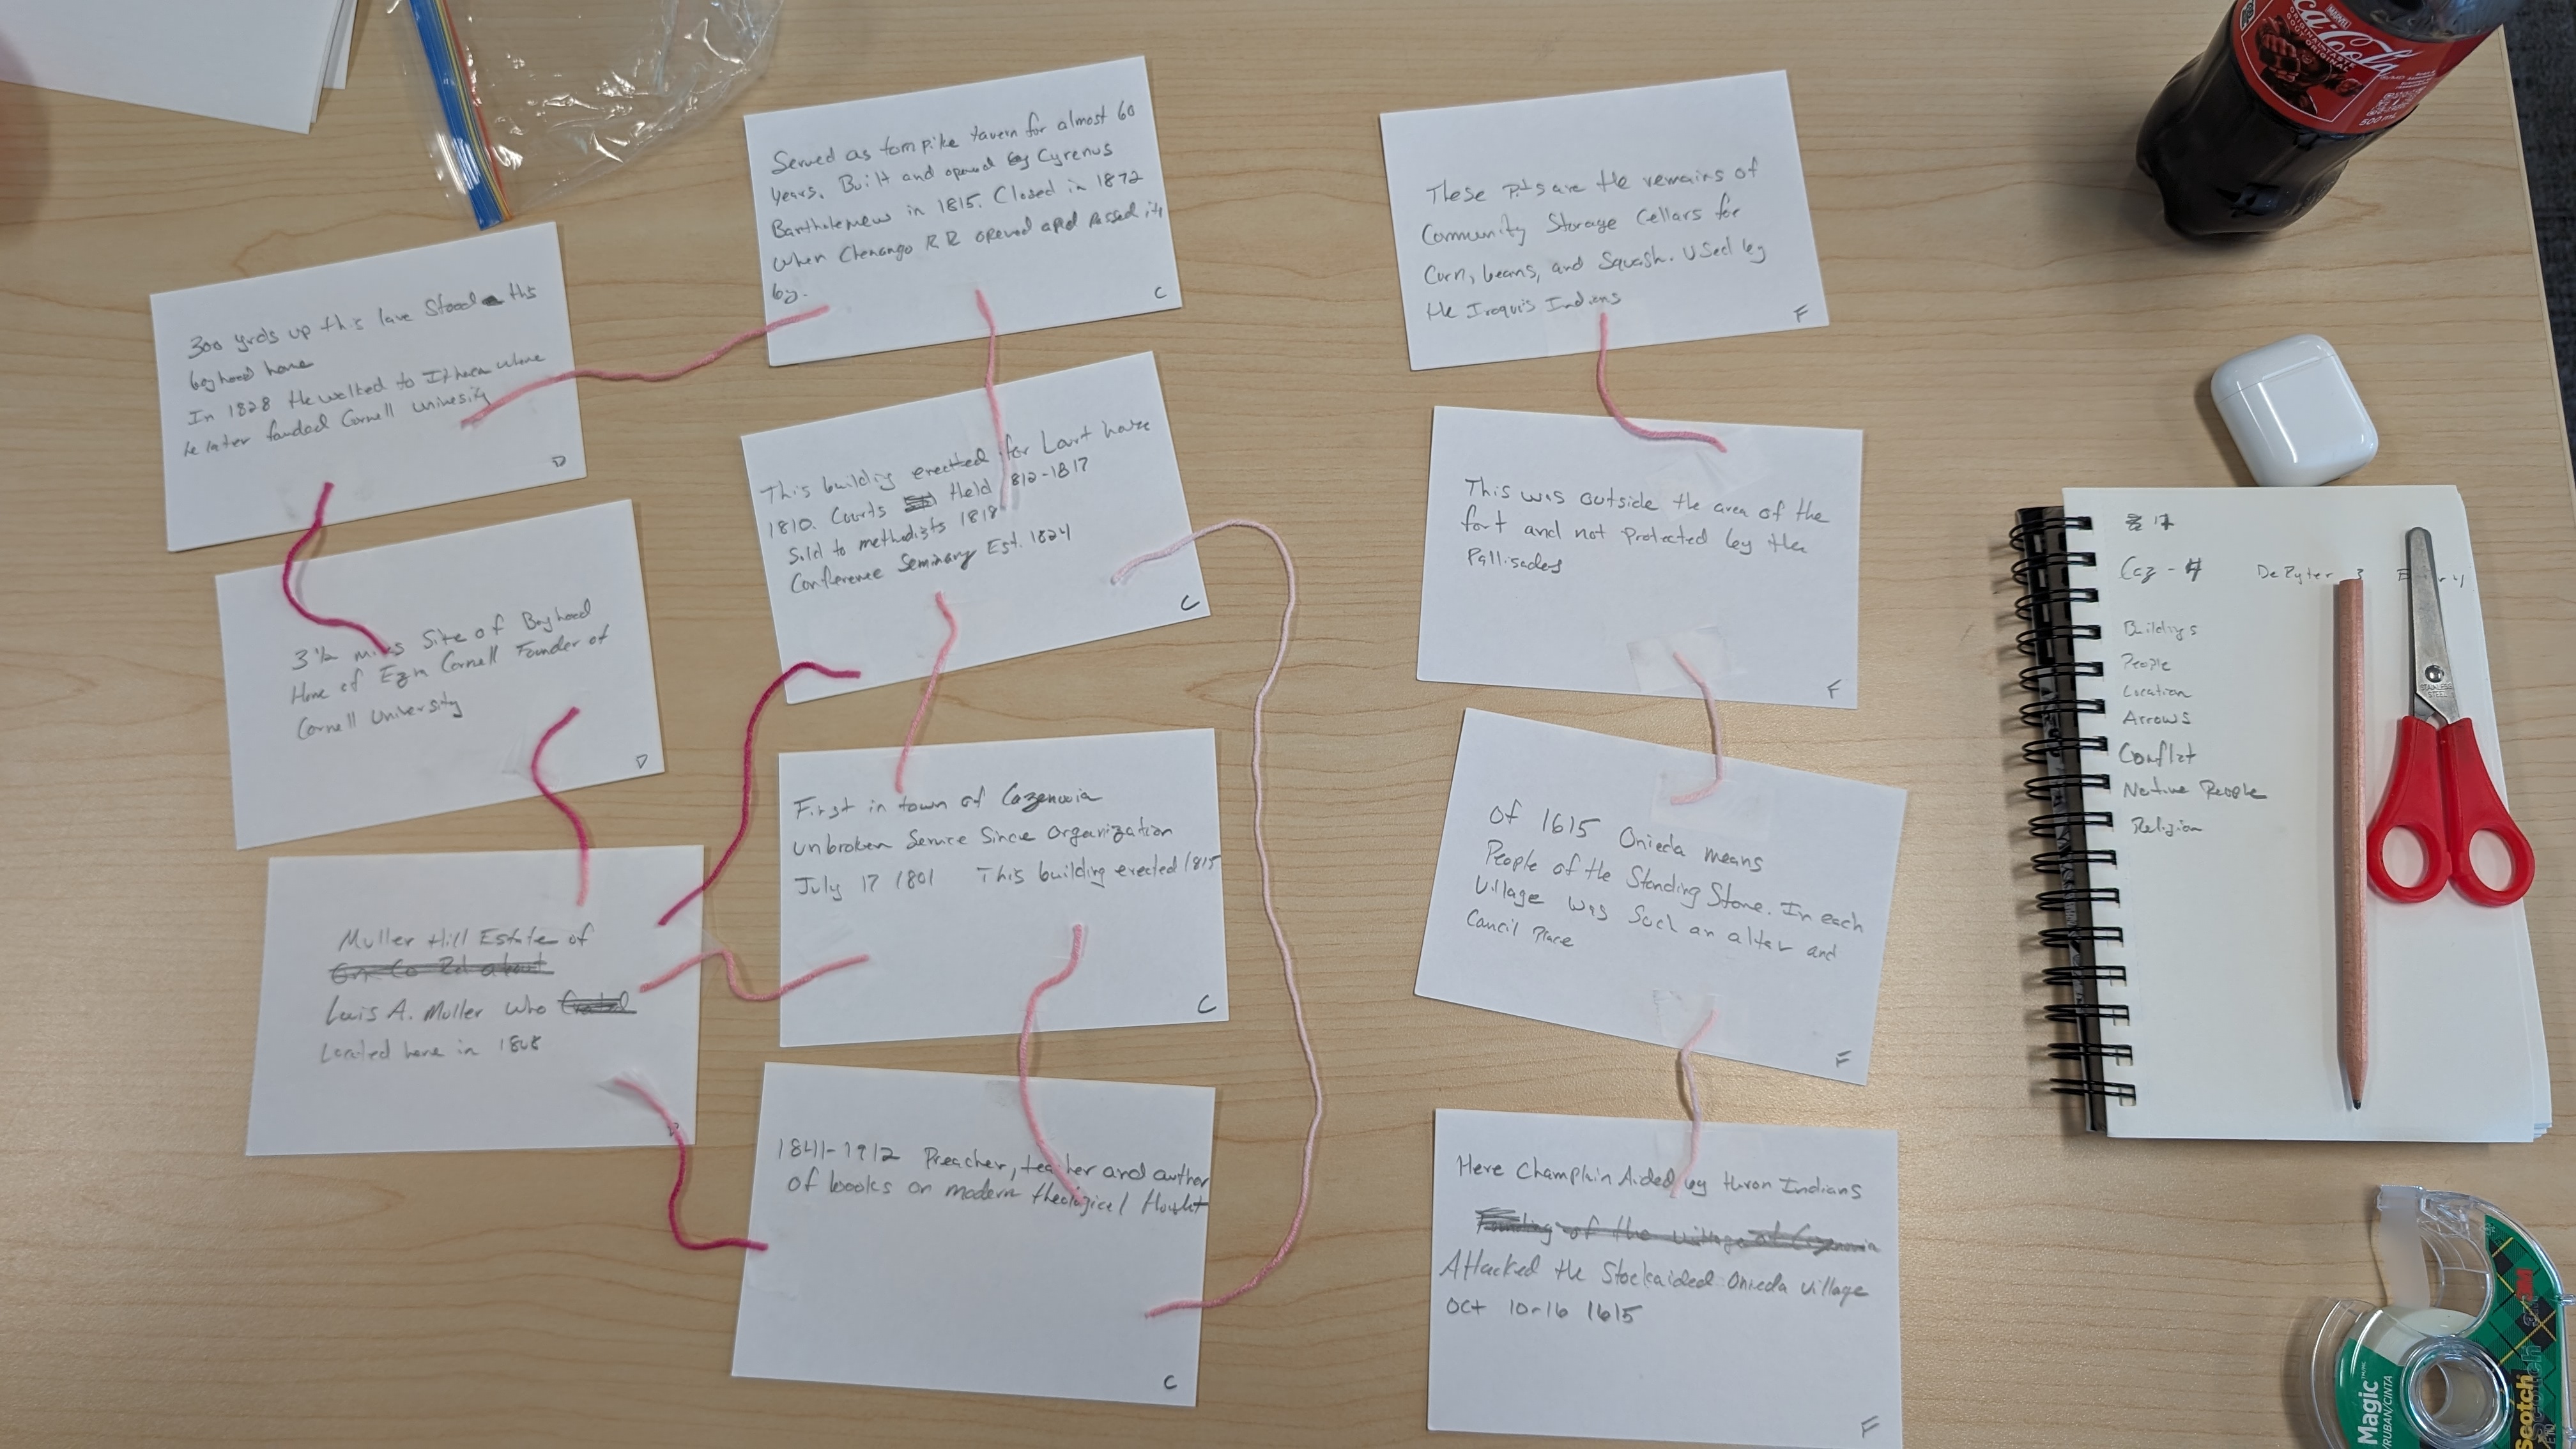 300 yrds up this lane Stood this
boyhood home
In 1828 He walked to Ithaca where
he later founded Cornell University
D
3 1/2 miles Site of Boyhood
Home of Ezra Cornell Founder of
Cornell University
D
Muller Hill Estate of
Luis A. Muller who
Located here in 1808
Served as tornpike tavern for almost 60
years. Built and opened by Cyrenus
Bartholemew in 1815. Closed in 1872
when Chenango RR opened and passed it
by.
C
This building erectted for Lourt house
1810. Courts Held 1812-1817
Sold to methodists 1818
Conference Seminary Est. 1824
C
First in town of Cazenovia
unbroken Service Since Organization
July 17 1801 This building erected 1815
C
1841-1912 Preacher, teacher and author
of books on modern theological thought
C
These Pits are the remains of
Community Storage Cellars for
Corn, beans, and Squash. Used by
the Iroquis Indians
F
This was outside the area of the
fort and not Protected by the
Pallisades
F
of 1615 Onieda means
People of the Standing Stone. In each
Village was Such an alter and
Council Place
F
Here Champlain Aided by Huron Indians
Founding of the village of Cazenovia
Attacked the Stockaided Onieda village
Oct 10-16 1615
F
17
Caz - 4 DeRyter 3
Buildings
People
Location
Arrows
Conflat
Native People
Religion
Coca-Cola
ORIGINAL TASTE
500 mL
STAINLESS
STEEL
Scotch
Magic
RUBAN/CINTA
3M